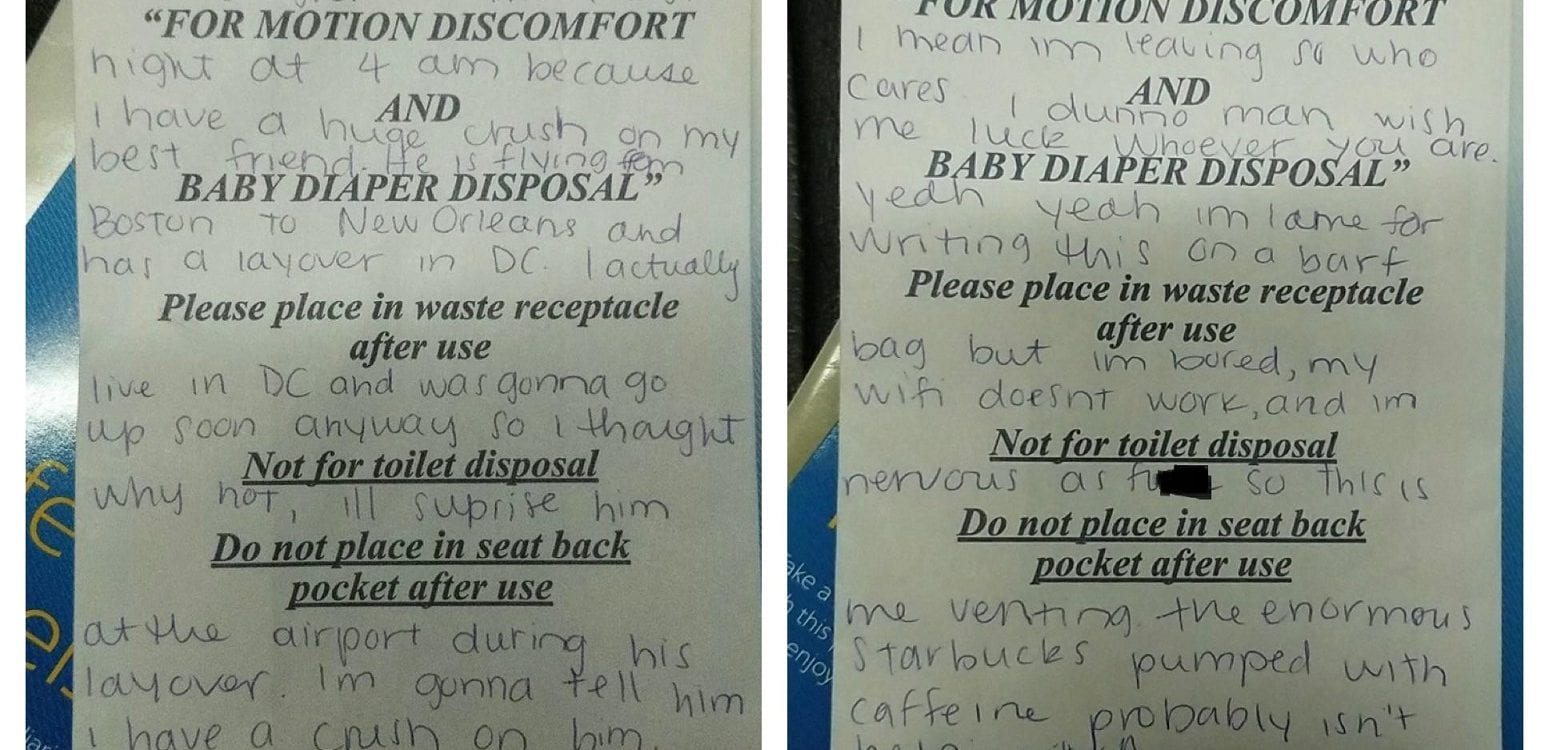 “FOR MOTION DISCOMFORT
night at 4 am because
AND
I have a huge crush on my
best friend. He is flying from
BABY DIAPER DISPOSAL”
Boston to New Orleans and
has a layover in DC. I actually
Please place in waste receptacle
after use
live in DC and was gonna go
up soon anyway so I thought
Not for toilet disposal
why not, ill suprise him
Do not place in seat back
pocket after use
at the airport during his
layover. Im gonna tell him
I have a crush on him.
FOR MOTION DISCOMFORT
I mean im leaving so who
cares
AND
I dunno man wish
me luck whoever you are.
BABY DIAPER DISPOSAL”
yeah yeah im lame for
writing this on a barf
Please place in waste receptacle
after use
bag but im bored, my
wifi doesnt work, and im
Not for toilet disposal
nervous as fu so this is
Do not place in seat back
pocket after use
me venting. the enormous
Starbucks pumped with
caffeine probably isn't
ake a
this
enjoy